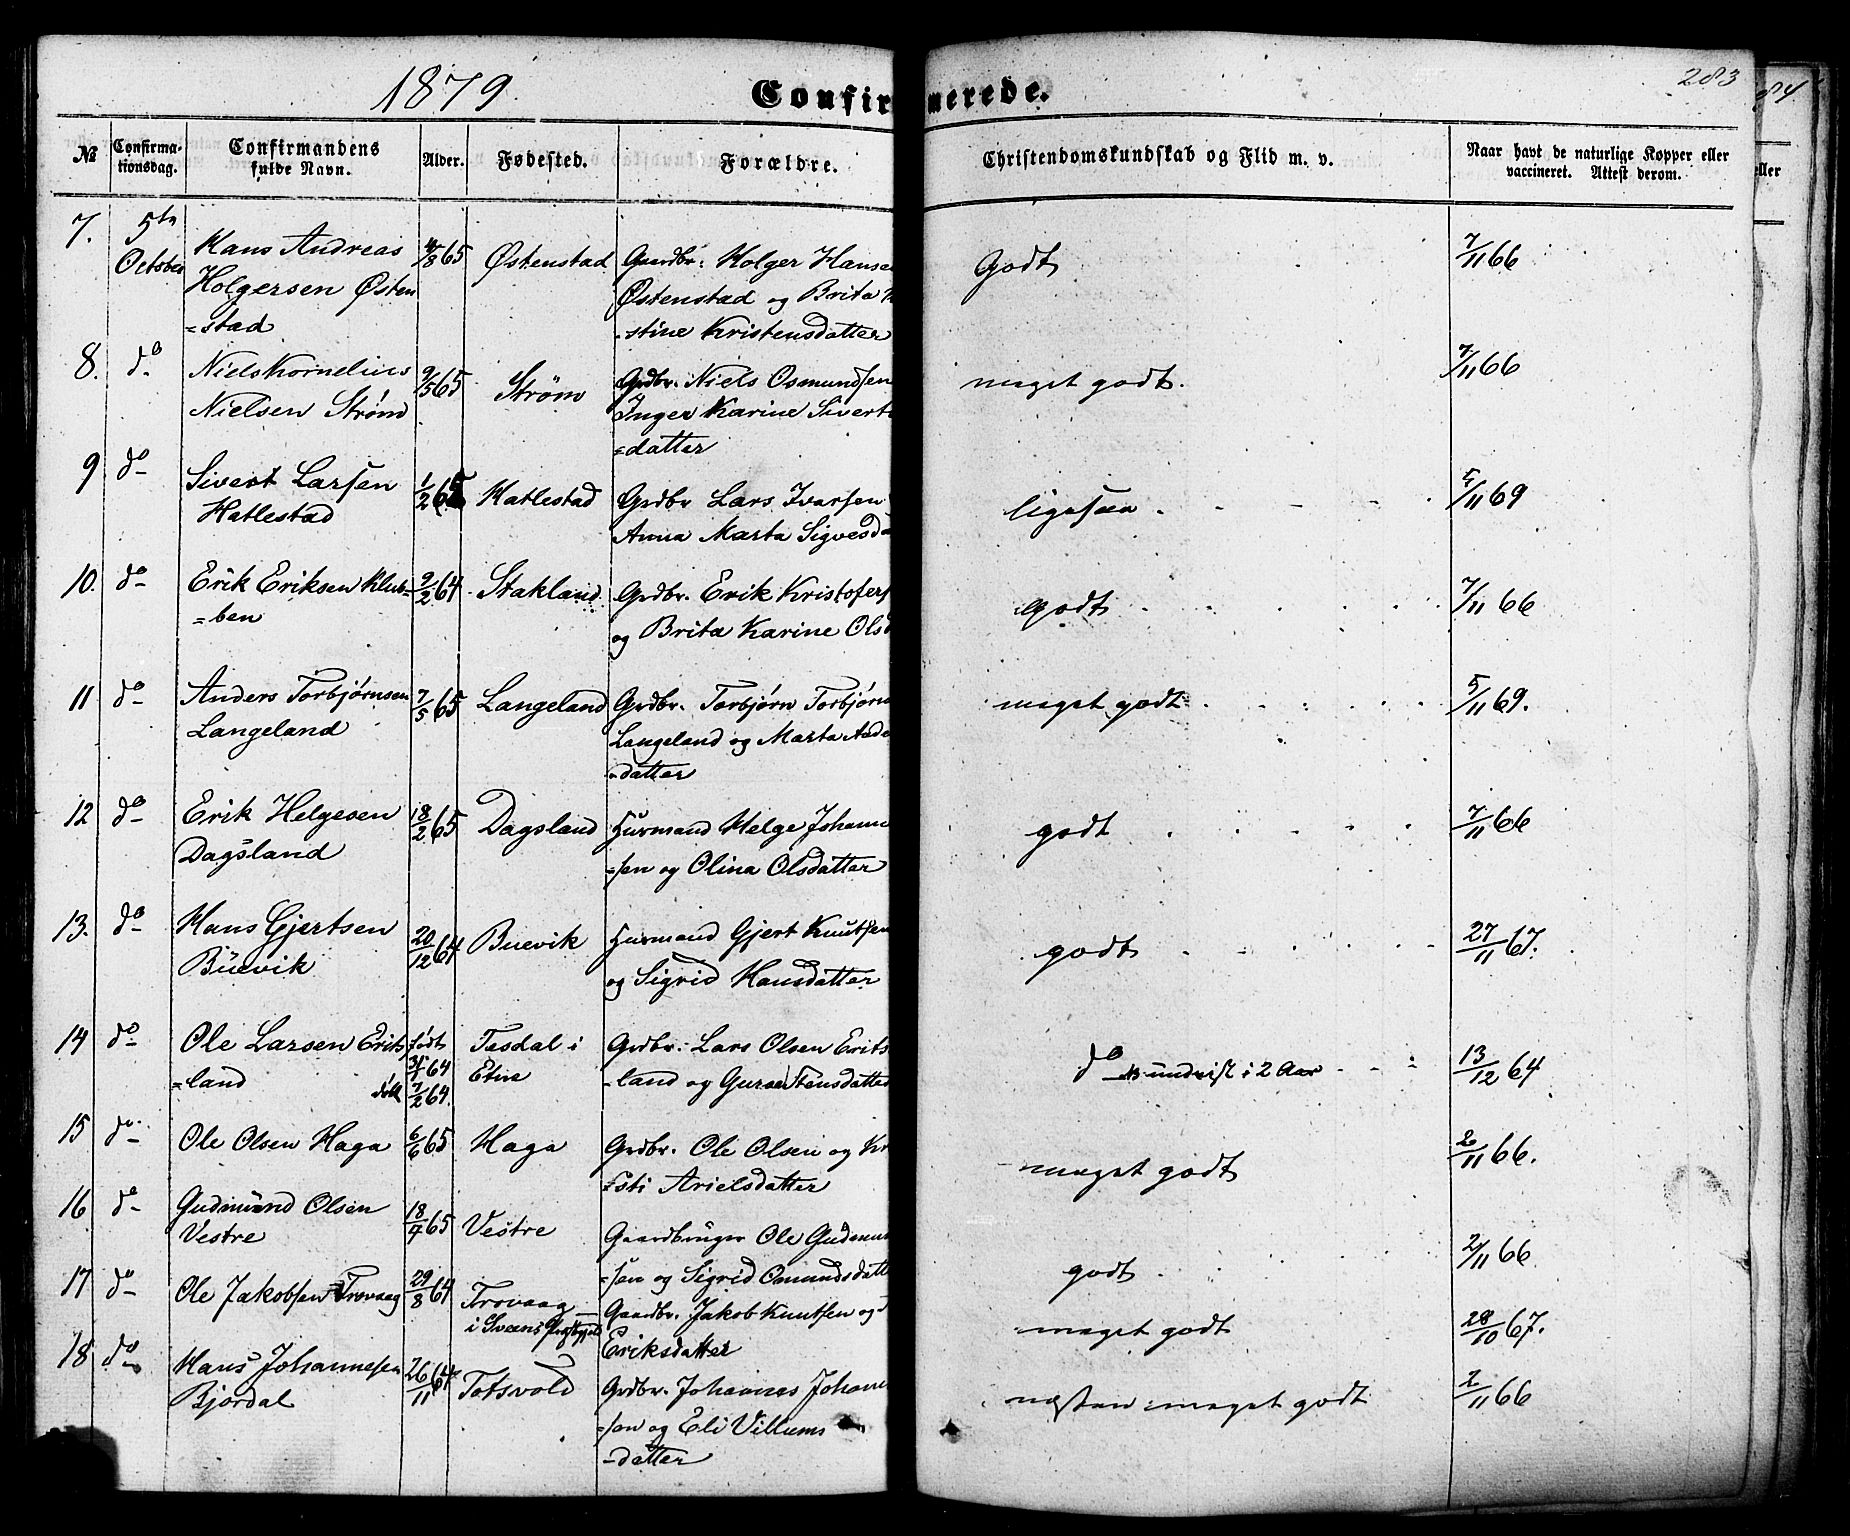 1879.
Confirmerede.
283
84
№
Confirma-
tionsdag.
Confirmandens
fulde Navn.
Alder.
Fødested.
Forældre.
Christendomskundskab og Flid m. v.
Naar havt de naturlige Kopper eller
vaccineret. Attest derom.
eller
7. 5te Hans Andreas 4/8 65 Østenstad Gaardbr. Holger Hansen Godt 7/11 66
October Holgersen Østen Østenstad og Brita K
=stad -stine Kristensdatter
8. do Niels Kornelius 9/5 65 Strøm Grdbr. Niels Osmundsen meget godt. 7/11 66
Nielsen Strøm Inger Karine Siverts
=datter
9 do Sivert Larsen 1/2 65 Hatlestad Grdbr Lars Ivarsen ligesaa 5/11 69
Hatlestad Anna Marta Sigvesd
10. do Erik Eriksen Klub- 9/2 64. Stakland Grdbr. Erik Kristofers godt 7/11 66
=ben og Brita Karine Olsd
11 do Anders Torbjørnsen 7/5 65 Langeland Grdbr. Torbjørn Torbjørn meget godt 5/11 69.
Langeland Langeland og Marta Ande
-datter
12 do Erik Helgesen 18/2 65 Dagsland Husmand Helge Johann godt 7/11 66
Dagsland =sen og Olina Olsdatter
13. do Hans Gjertsen 20/12 64 Buevik Husmand Gjert Knutsen godt 27/11 67.
Buevik og Sigrid Hansdatter
14 do Ole Larsen Erits født Tesdal i Grdbr. Lars Olsen Erits do undvist i 2 Aar 13/12 64
=land 31/1 64 Etne -land og Guroe Stensdatter
døbt 7/2 64.
15 do Ole Olsen Haga 6/6 65 Haga Grdbr. Ole Olsen og Kr meget godt 2/11 66.
=sti Arielsdatter
16 do Gudmund Olsen 18/7 65 Vestre Gaardbruger Ole Gudmun godt 2/11 66
Vestre =sen og Sigrid Omundsdatte
17 do Ole Jakobsen Trovaag 29/8 64 Trovaag Gaardbr. Jakob Knutsen og meget godt 28/10 67.
i Sveens Præstegjeld Eriksdatter
18 do Hans Johannesen 26/11 64 Totsvold Grdbr. Johannes Johann næsten meget godt 2/11 66
Bjordal =sen og Eli Villums
-datter